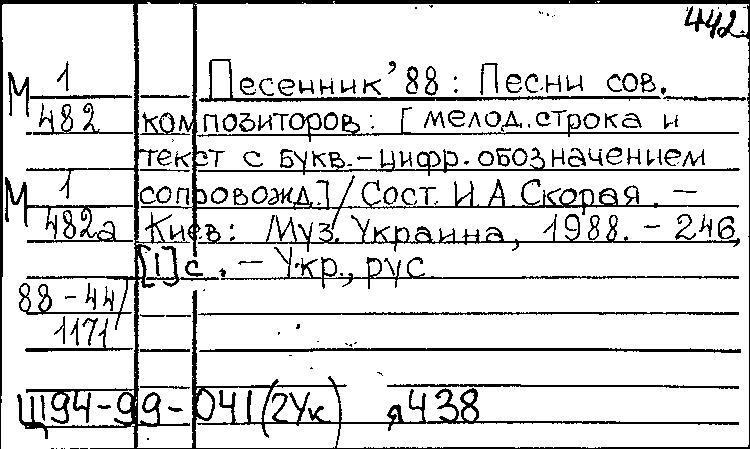 442.
М 1 Песенник'88: Песни сов.
482 композиторов: [мелод. строка и
текст с букв.-цифр. обозначением
М 1 сопровожд.] / Сост. И А Скорая. –
482а Киев: Муз. Украина, 1988. – 246,
[1] с. – Укр., рус
88-44/
1171
Щ94-99-041(2Ук) я438